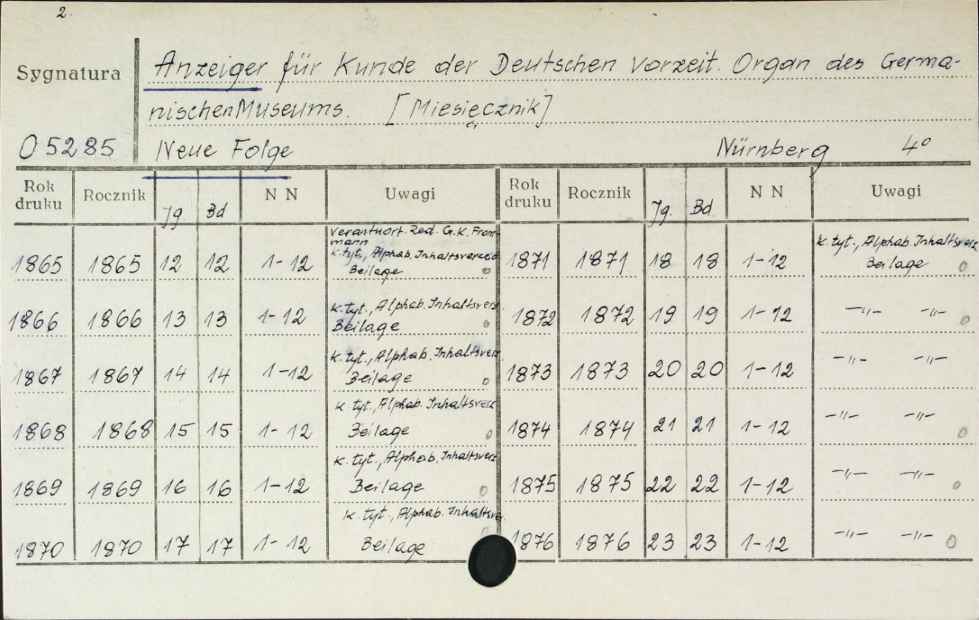 2.
Sygnatura
Anzeiger für Kunde der Deutschen Vorzeit. Organ des Germa-
nischen Museums. [Miesięcznik]
O 5285 Neue Folge Nürnberg 4°
Rok druku Rocznik Jg Bd N N Uwagi Rok druku Rocznik Jg. Bd. N N Uwagi
Verantwort. Red. G. K. From-
mann
1865 1865 12 12 1-12 k. tyt., Alphab. Inhaltsverz. Beilage o 1871 1871 18 18 1-12 k tyt., Alphab. Inhaltsverz Beilage o
1866 1866 13 13 1-12 k. tyt., Alphab. Inhaltsverz Beilage o 1872 1872 19 19 1-12 -"- -"- o
1867 1867 14 14 1-12 k. tyt., Alphab. Inhaltsverz. Beilage o 1873 1873 20 20 1-12 -"- -"-
1868 1868 15 15 1-12 k tyt., Alphab. Inhaltsverz Beilage o 1874 1874 21 21 1-12 -"- -"- o
1869 1869 16 16 1-12 k. tyt., Alphab. Inhaltsverz. Beilage o 1875 1875 22 22 1-12 -"- -"- o
1870 1870 17 17 1-12 k. tyt., Alphab. Inhaltsverz. Beilage o 1876 1876 23 23 1-12 -"- -"- o